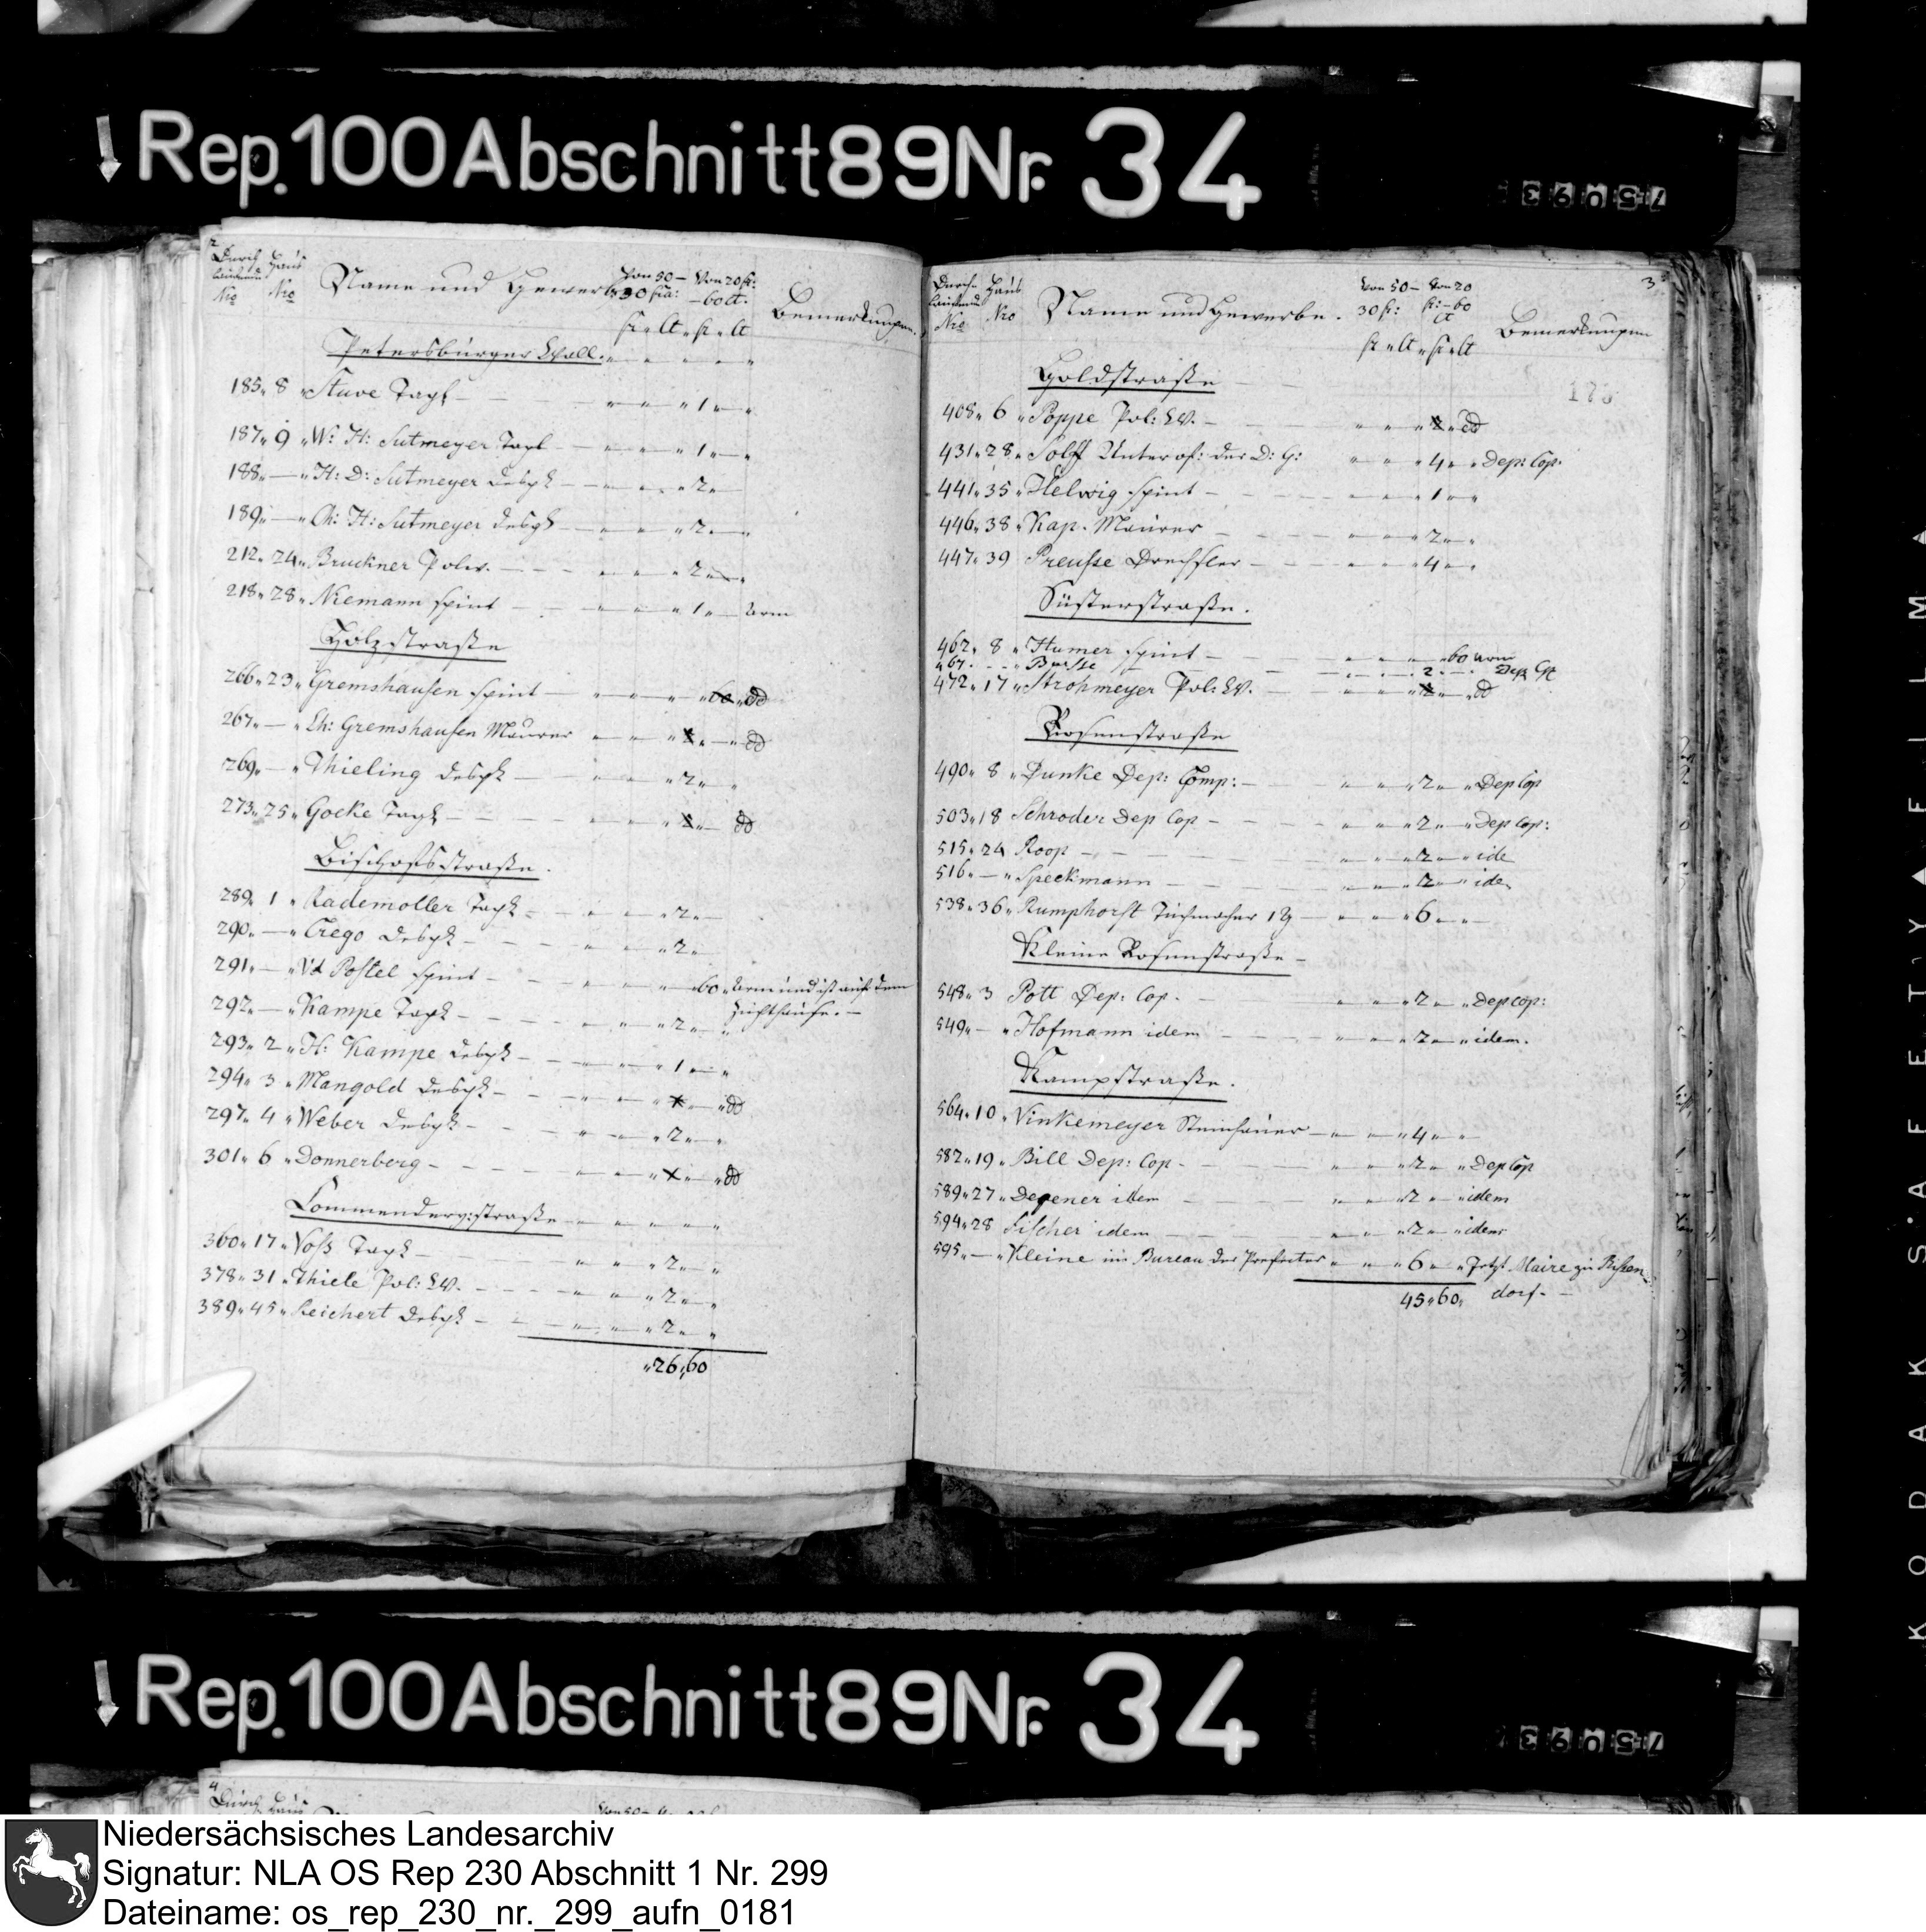 Rep. 100 Abschnitt 89 Nr. 34
2
Durch Haus Name und Gewerbe Von 50– Von 20 fr:
laufende Nro 30 fra: –60 ct. Bemerkungen.
Nro
fr " ct " fr " ct
Petersburger Wall.
185 " 8 " Stuve Tagl – " " " 1 " – "
187 " 9 " W: H: Sutmeyer Tagl – " " " 1 " – "
188 " — " H: D: Sutmeyer desgl – " " " 2 " –
189 " — " Ch: H: Sutmeyer desgl – " " " 2 " – "
212 " 24 " Bruckner Polw. – " " " 2 " – "
218 " 28 " Niemann spint – " " " 1 " – arm
Holzstraße
266 " 23 " Gremshausen spint – " " " " 60 " dd
267 " — " Ch: Gremshausen Maurer " " " 2 " – " dd
269 " — " Thieling desgl – " " " 2 " "
273 " 25 " Gocke Tagl – " " " 2 " – dd
Bischofsstraße.
289 " 1 " Rademoller Tagl – " " " 2 " –
290 " — " Crego desgl – " " 2 " –
291 " — " Wd Postel spint – " " " – 60 " arm und ist auf dem
Zuchthause. –
292 " — " Kampe Tagl – " " " 2 " – "
293 " 2 " H: Kampe desgl – " " " 1 " – "
294 " 3 " Mangold desgl – " " " – " dd
297 " 4 " Weber desgl – " – " " 2 " – "
301 " 6 " Donnerberg – " " " – " dd
Commenderystraße
360 " 17 " Voß Tagl – " " " 2 " – "
378 " 31 " Thiele Pol: LW. – " " " 2 " – "
389 " 45 " Reichert desgl – " " " 2 " "
" 26 " 60
3
Durch- Haus Name und Gewerbe. Von 50– Von 20
laufende Nro 30 fr: fr: –60 ct Bemerkungen
Nro
fr " ct " fr " ct
173
Goldstraße
408 " 6 " Poppe Pol: LW. – " " " 2 " dd
431 " 28 " Solff Unterof: der D: G: " " " 4 " " Dep: Cop.
441 " 35 " Helwig spint – " " " 1 " "
446 " 38 " Kap. Maurer – " " " 2 " – "
447 " 39 Preusse Drechsler – " " " 4 " – "
Süsterstraße.
462 " 8 " Humer spint – " " " – " 60 arm
" 67 " Busse – " " " 2 . – Dep Cp
472 " 17 " Strohmeyer Pol: LW. – " " " 2 " – " dd
Rosenstraße
490 " 8 " Dunke Dep: Comp: – " " " 2 " – " Dep Cop
503 " 18 Schroder Dep Cop – " " " 2 " – " Dep Cop:
515 " 24 Roop – " " " 2 " – " ide
516 " — " Speckmann – " " " 2 " – " ide
538 " 36 " Rumphorst Tuchmacher 1 G – " " " 6 " – "
Kleine Rosenstraße –
548 " 3 Pott Dep: Cop. – " " " 2 " – " Dep Cop:
549 " – " Hofmann idem – " " " 2 " – " idem.
Kampstraße.
564 " 10 " Vinkemeyer Steinhauer – " " " 4 " – "
582 " 19 " Bill Dep: Cop. – " " " 2 " – " Dep Cop
589 " 27 " Degener idem – " " " 2 " – " idem
594 " 28 Fischer idem – " " " 2 " – " idem
595 " — " Kleine im Bureau des Prefecten " " " 6 " – " Jetzt Maire zu
dorf. –
45 " 60 "
KODAK S'AFETY FILM
Rep. 100 Abschnitt 89 Nr. 34
4
Durch Haus
Niedersächsisches Landesarchiv
Signatur: NLA OS Rep 230 Abschnitt 1 Nr. 299
Dateiname: os_rep_230_nr._299_aufn_0181